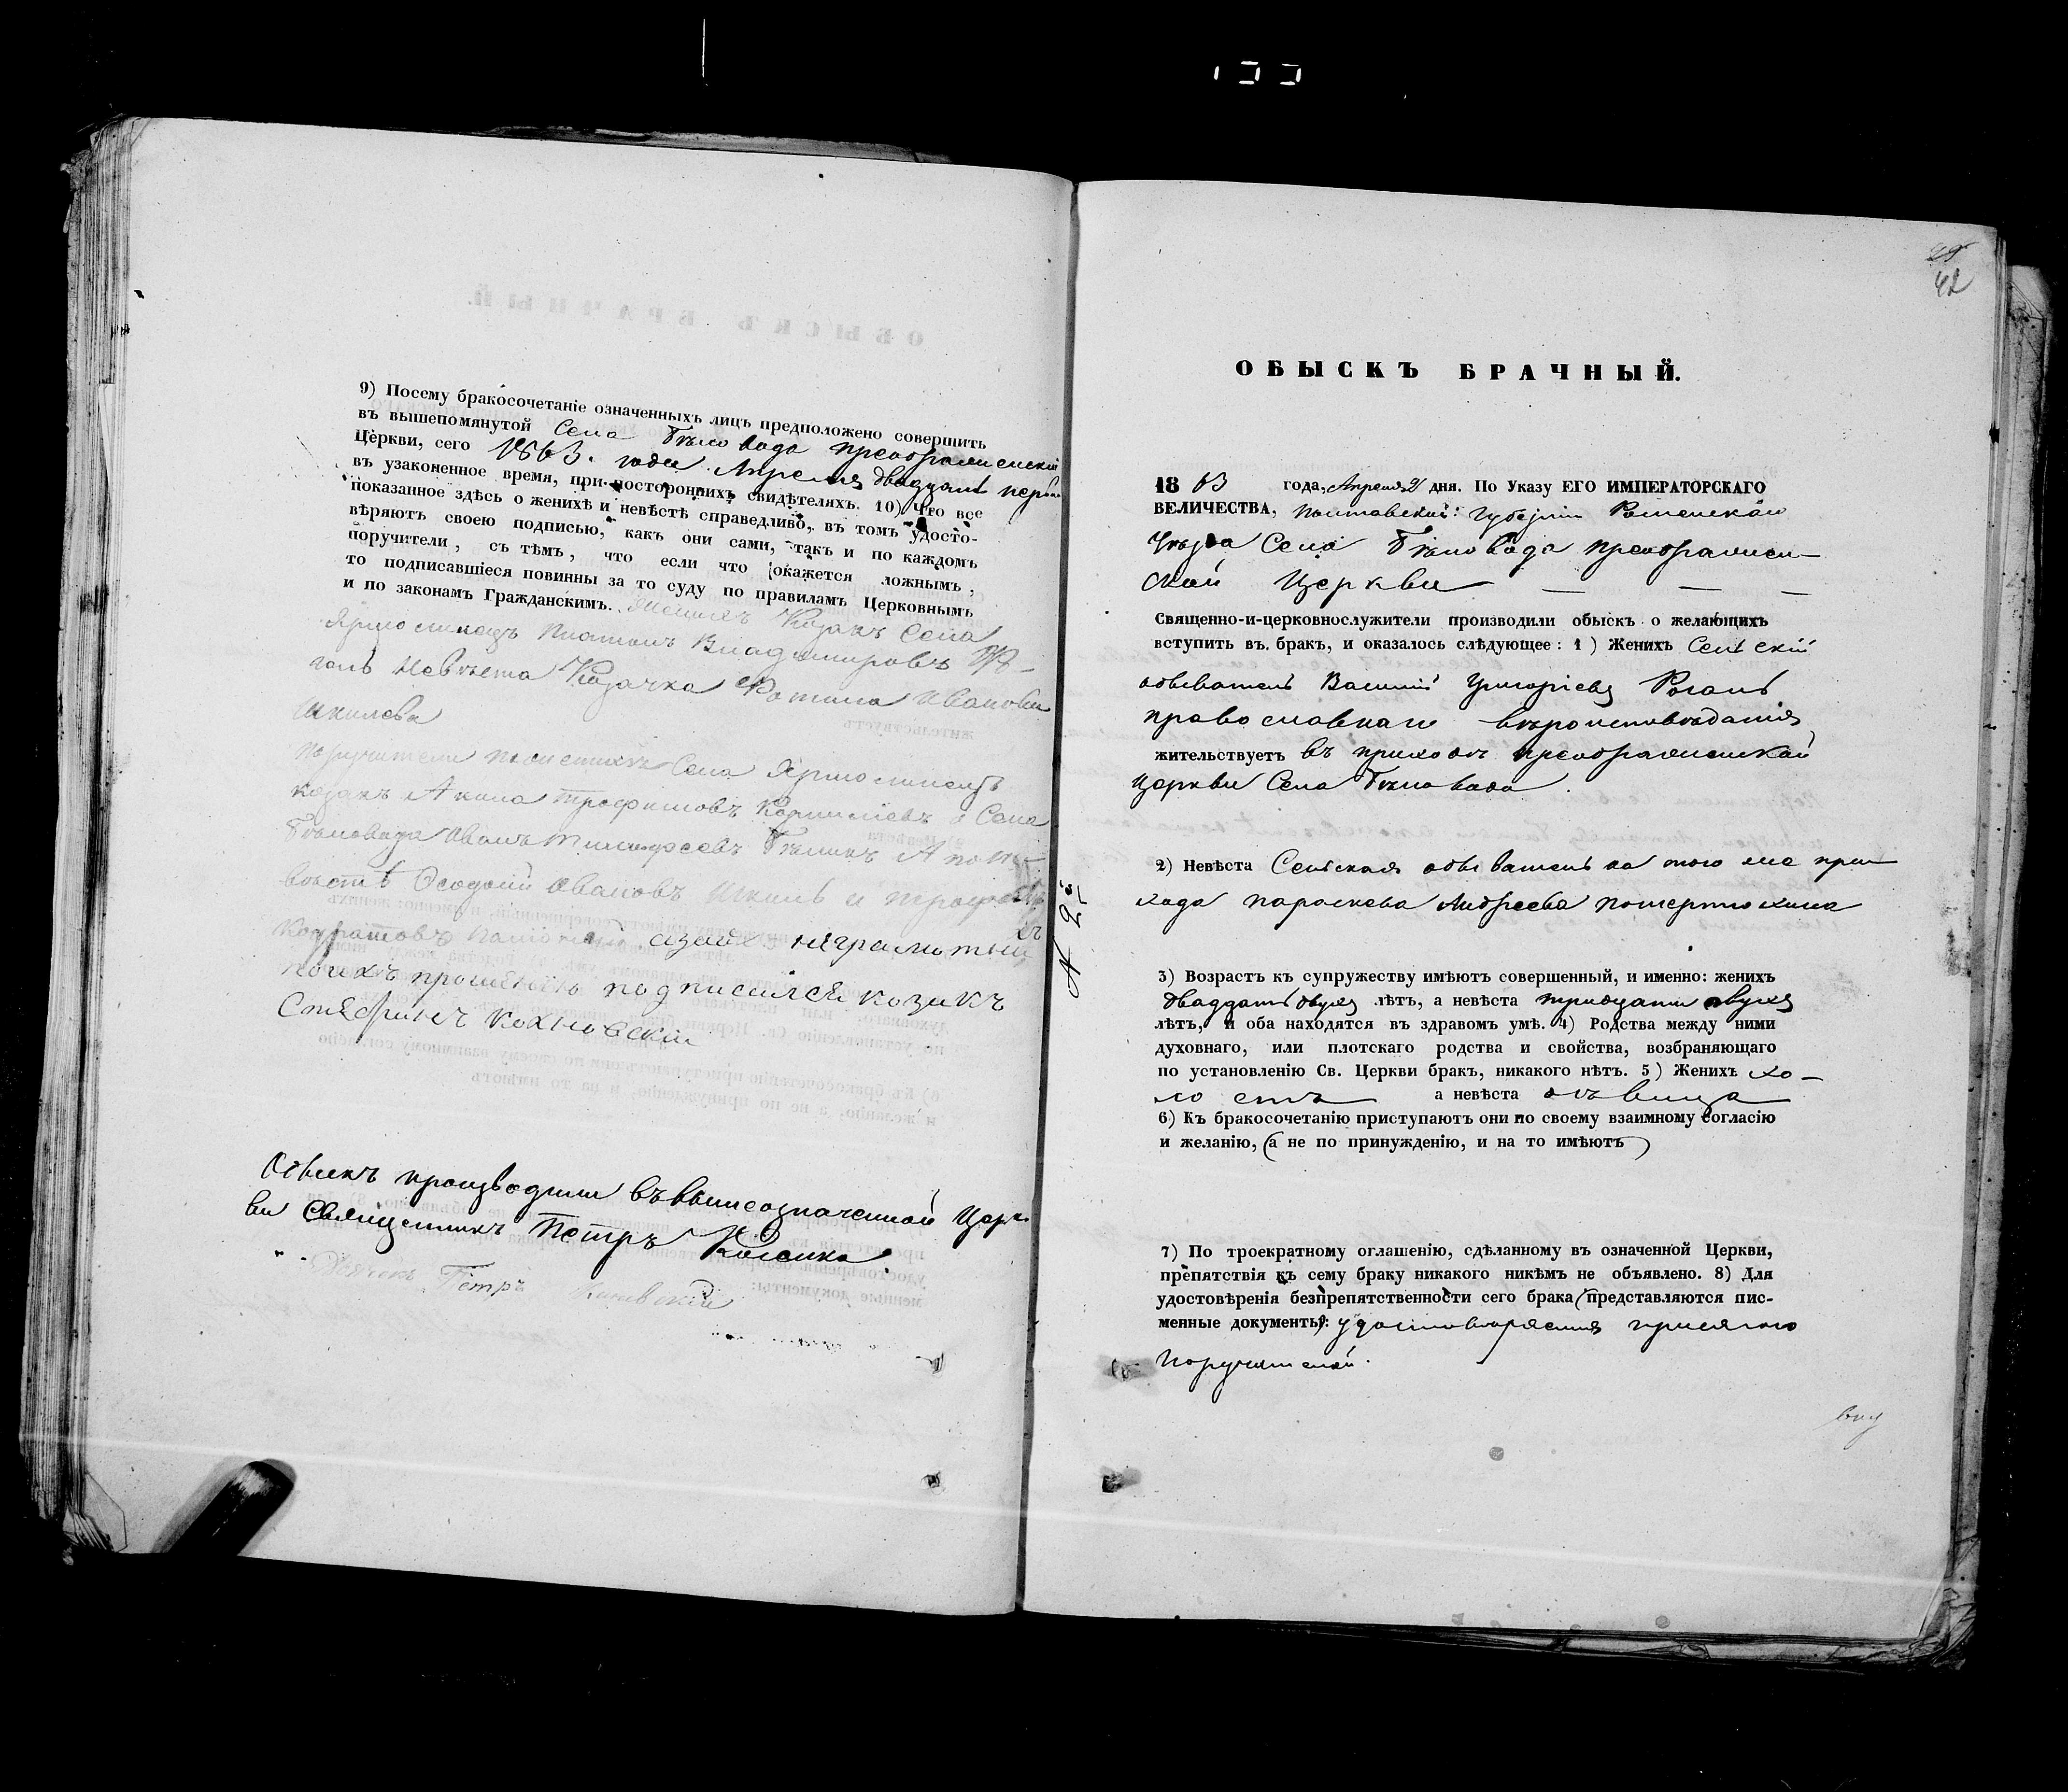 9) Посему бракосочетаніе означенныхъ лицъ предположено совершить
въ вышепомянутой Села Бѣловода преображенской
Церкви, сего 1863. года Апреля двадцать перв
въ узаконенное время, при посторонніхъ свидѣтеляхъ. 10) Что все
показанное здѣсь о женихѣ и невѣстѣ справедливо, въ томъ удосто-
вѣряютъ своею подписью, какъ они сами, такъ и по каждомъ
поручители, съ тѣмъ, что если что окажется ложнымъ,
то подписавшіеся повинны за то суду по правиламъ Церковнымъ
и по законамъ Гражданскимъ. Женихъ Козакъ Села
Платонъ Владимировъ
Невѣста Козачка Иванова
Шкилева
поручители по женихѣ Села
козакъ Акила Трофимовъ Села
Бѣловода Иванъ Тимофеевъ Бѣликъ А по не-
вѣстѣ Ѳеодоій Ивановъ Шкиль и
Кондратовъ неграмотныи
поихъ прошенію подписался козакъ
Кохновскій
Обыскъ производили въ вышеозначенной Церк
ви Священникъ Петръ
Петръ
N 25
42
ОБЫСКЪ БРАЧНЫЙ.
1863 года, Апреля 21 дня. По Указу ЕГО ИМПЕРАТОРСКАГО
ВЕЛИЧЕСТВА, Полтавской Губерніи Роменскаго
Уѣзда Села Бѣловода преображен-
ской Церкви
Священно-и-церковнослужители производили обыскъ о желающихъ
вступить въ бракъ, и оказалось слѣдующее: 1) Женихъ Сельскій
обыватель Василій Григоріевъ Рогаль
православнаго вѣроисповѣданія
жительствуетъ въ приходѣ преображенской
Церкви Села Бѣловода.
2) Невѣста Сельская обывательна того же при
хода параскева Андреева
3) Возрастъ къ супружеству имѣютъ совершенный, и именно: женихъ
двадцать двухъ лѣтъ, а невѣста тридцати двухъ
лѣтъ, и оба находятся въ здравомъ умѣ. 4) Родства между ними
духовнаго, или плотскаго родства и свойства, возбраняющаго
по установленію Св. Церкви бракъ, никакого нѣтъ. 5) Женихъ хо-
лостъ а невѣста дѣвица
6) Къ бракосочетанію приступаютъ они по своему взаимному согласію
и желанію, (а не по принужденію, и на то имѣютъ)
7) По троекратному оглашенію, сдѣланному въ означенной Церкви,
препятствія къ сему браку никакого никѣмъ не объявлено. 8) Для
удостовѣренія безпрепятственности сего брака (представляются пис-
менные документы): удостовѣренія присягою
поручителей.